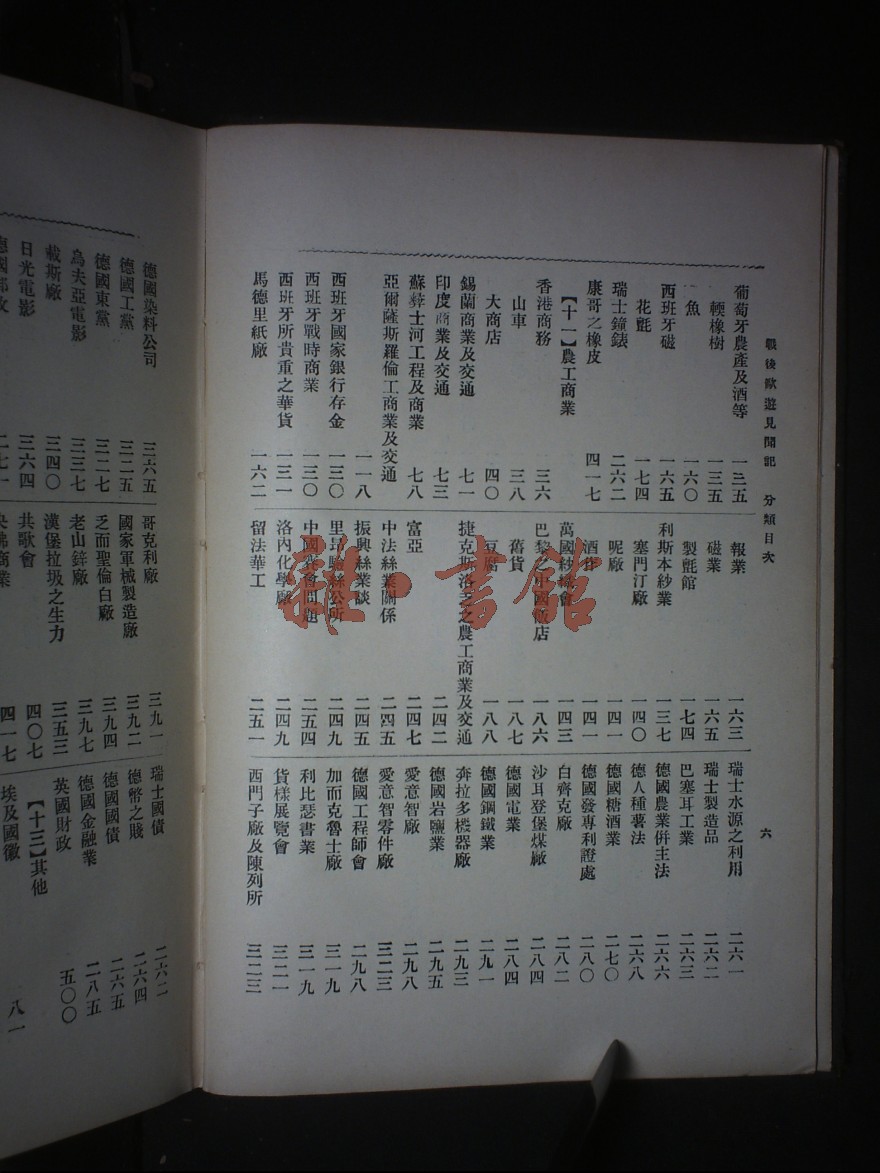 戰後歐遊見聞記 分類目次
六
葡萄牙農產及酒等 一三五
輭橡樹 一三五
魚 一六〇
西班牙磁 一六五
花氈 一七四
瑞士鐘錶 二六二
康哥之橡皮 四一七
【十一】農工商業
香港商務 三六
山車 三八
大商店 四〇
錫蘭商業及交通 七一
印度商業及交通 七三
蘇彝士河工程及商業 七八
亞爾薩斯羅倫工商業及交通 一一八
西班牙國家銀行存金 一三〇
西班牙戰時商業 一三〇
西班牙所貴重之華貨 一三一
馬德里紙廠 一六二
報業 一六三
磁業 一六五
製氈館 一七四
利斯本紗業 一三七
塞門汀廠 一四〇
呢廠 一四一
酒 一四一
萬國紗 會 一四三
巴黎之中國飯店 一八六
舊貨 一八七
豆腐 一八八
捷克斯洛乏之農工商業及交通 二四二
富亞 二四七
中法絲業關係 二四五
振興絲業談 二四五
里 絲公所 二四九
中國 問題 二五四
洛內化學廠 二四九
留法華工 二五一
瑞士水源之利用 二六一
瑞士製造品 二六二
巴塞耳工業 二六三
德國農業併主法 二六六
德人種薯法 二六八
德國糖酒業 二七〇
德國發專利證處 二八〇
白齊克廠 二八二
沙耳登堡煤廠 二八四
德國電業 二八四
德國鋼鐵業 二九一
奔拉多機器廠 二九三
德國岩鹽業 二九五
愛意智廠 二九八
愛意智零件廠 三二三
德國工程師會 二九八
加而克魯士廠 三一九
利比瑟書業 三一九
貨樣展覽會 三二一
西門子廠及陳列所 三二三
德國染料公司 三六五
德國工黨 三二五
德國東黨 三二七
烏夫亞電影 三三七
載斯廠 三四〇
日光電影 三六四
德國郵政 二七一
哥克利廠 三九一
國家軍械製造廠 三九二
乏而聖倫白廠 三九四
老山鋅廠 三九七
漢堡垃圾之生力 三五三
共歌會 四〇七
商業 四一七
瑞士國債 二六二
德幣之賤 二六四
德國國債 二六五
德國金融業 二八五
英國財政 五〇〇
【十三】其他
埃及國徽 八一
書館